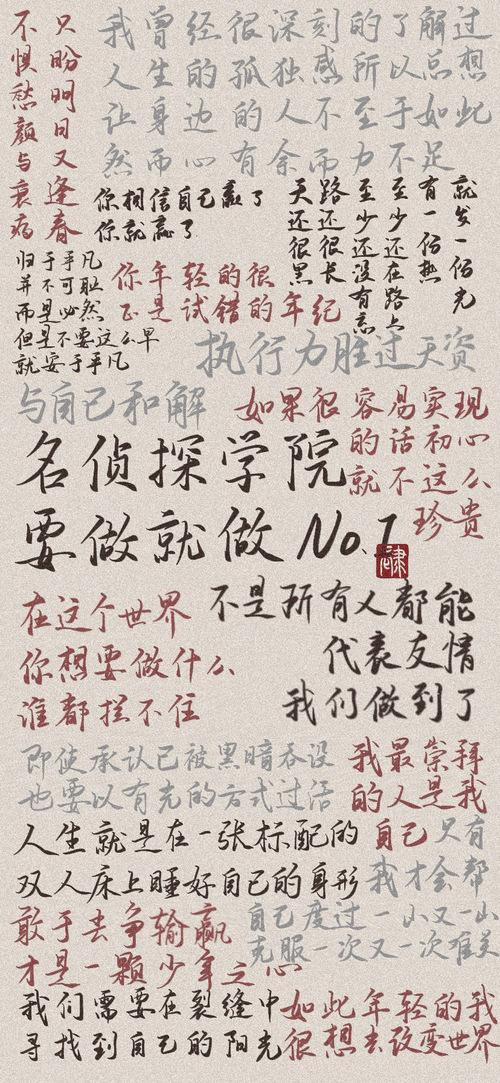 只盼明日又逢春
不惧愁颜与衰病
我曾经很深刻的了解过
人生的孤独感所以总想
让身边的人不至于如此
然而心有余而力不足
你相信自己赢了
你就赢了
就发一份光
有一份热
至少还在路上
至少还没有忘
路还很长
天还很黑
归于平凡
并不可耻
而是必然
但是不要这么早
就安于平凡
你年轻的很
正是试错的年纪
执行力胜过天资
与自己和解
如果很容易实现
的话初心
就不这么
珍贵
名侦探学院
要做就做 No.1
在这个世界
你想要做什么
谁都拦不住
不是所有人都能
代表友情
我们做到了
即使承认已被黑暗吞没
也要以有光的方式过活
我最崇拜
的人是我
自己
人生就是在一张标配的
双人床上睡好自己的身形
只有
我才会帮
自己度过一山又一山
克服一次又一次难关
敢于去争输赢
才是一颗少年之心
我们需要在裂缝中
寻找到自己的阳光
如此年轻的我
很想去改变世界